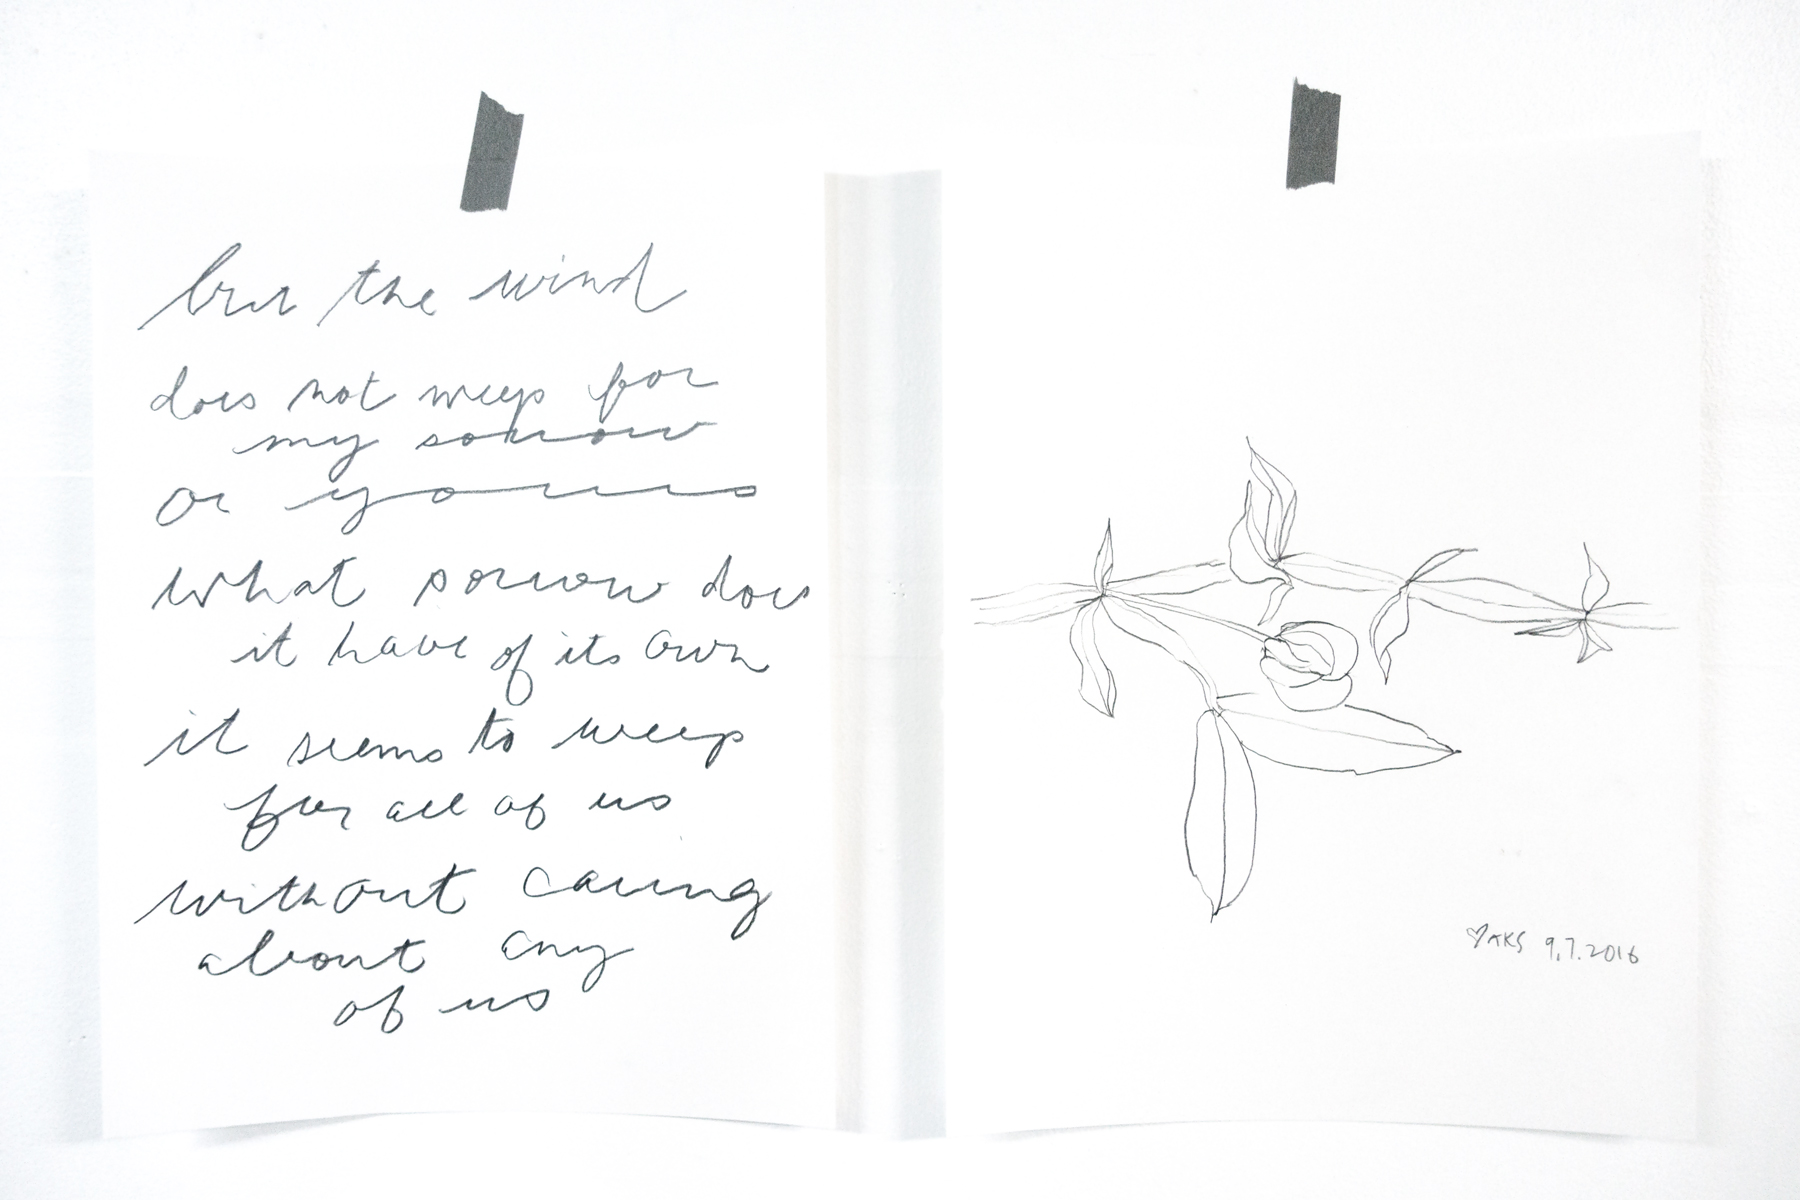 but the wind
does not weep for
my sorrow
or yours
what sorrow does
it have of its own
it seems to weep
for all of us
without caring
about any
of us
♡AKS 9.7.2016